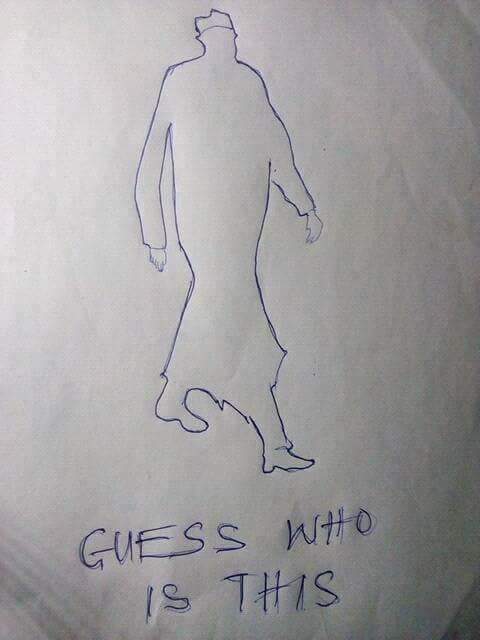 GUESS WHO
IS THIS